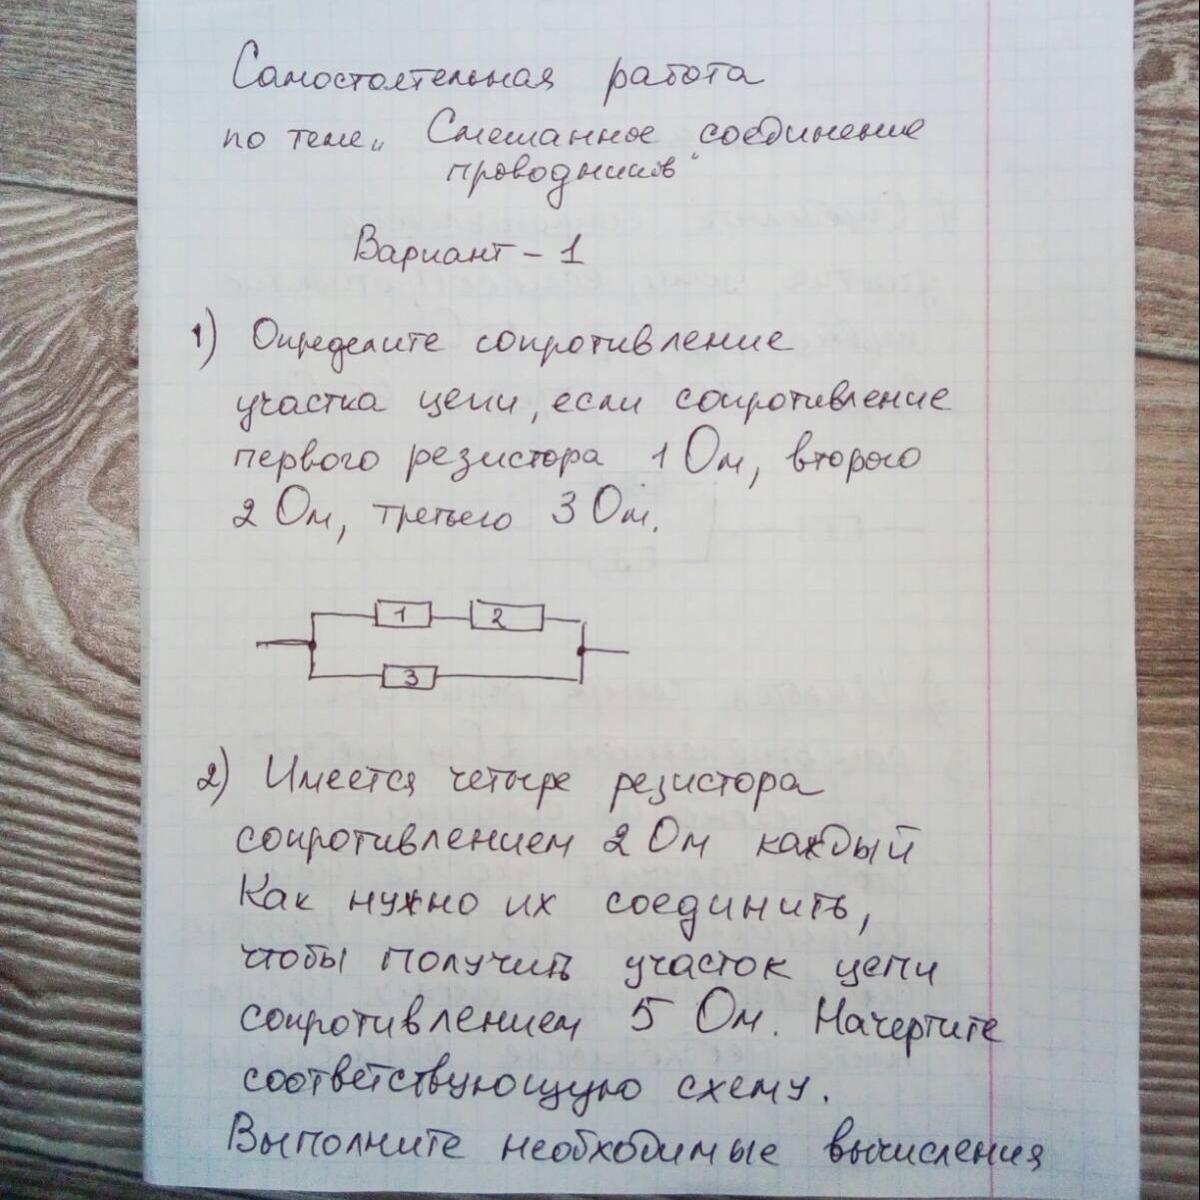 Самостоятельная работа
по теме „ Смешанное соединение
проводников“
Вариант - 1
1) Определите сопротивление
участка цепи, если сопротивление
первого резистора 1 Ом, второго
2 Ом, третьего 3 Ом.
1 2
3
2) Имеется четыре резистора
сопротивлением 2 Ом каждый
Как нужно их соединить,
чтобы получить участок цепи
сопротивлением 5 Ом. Начертите
соответствующую схему.
Выполните необходимые вычисления